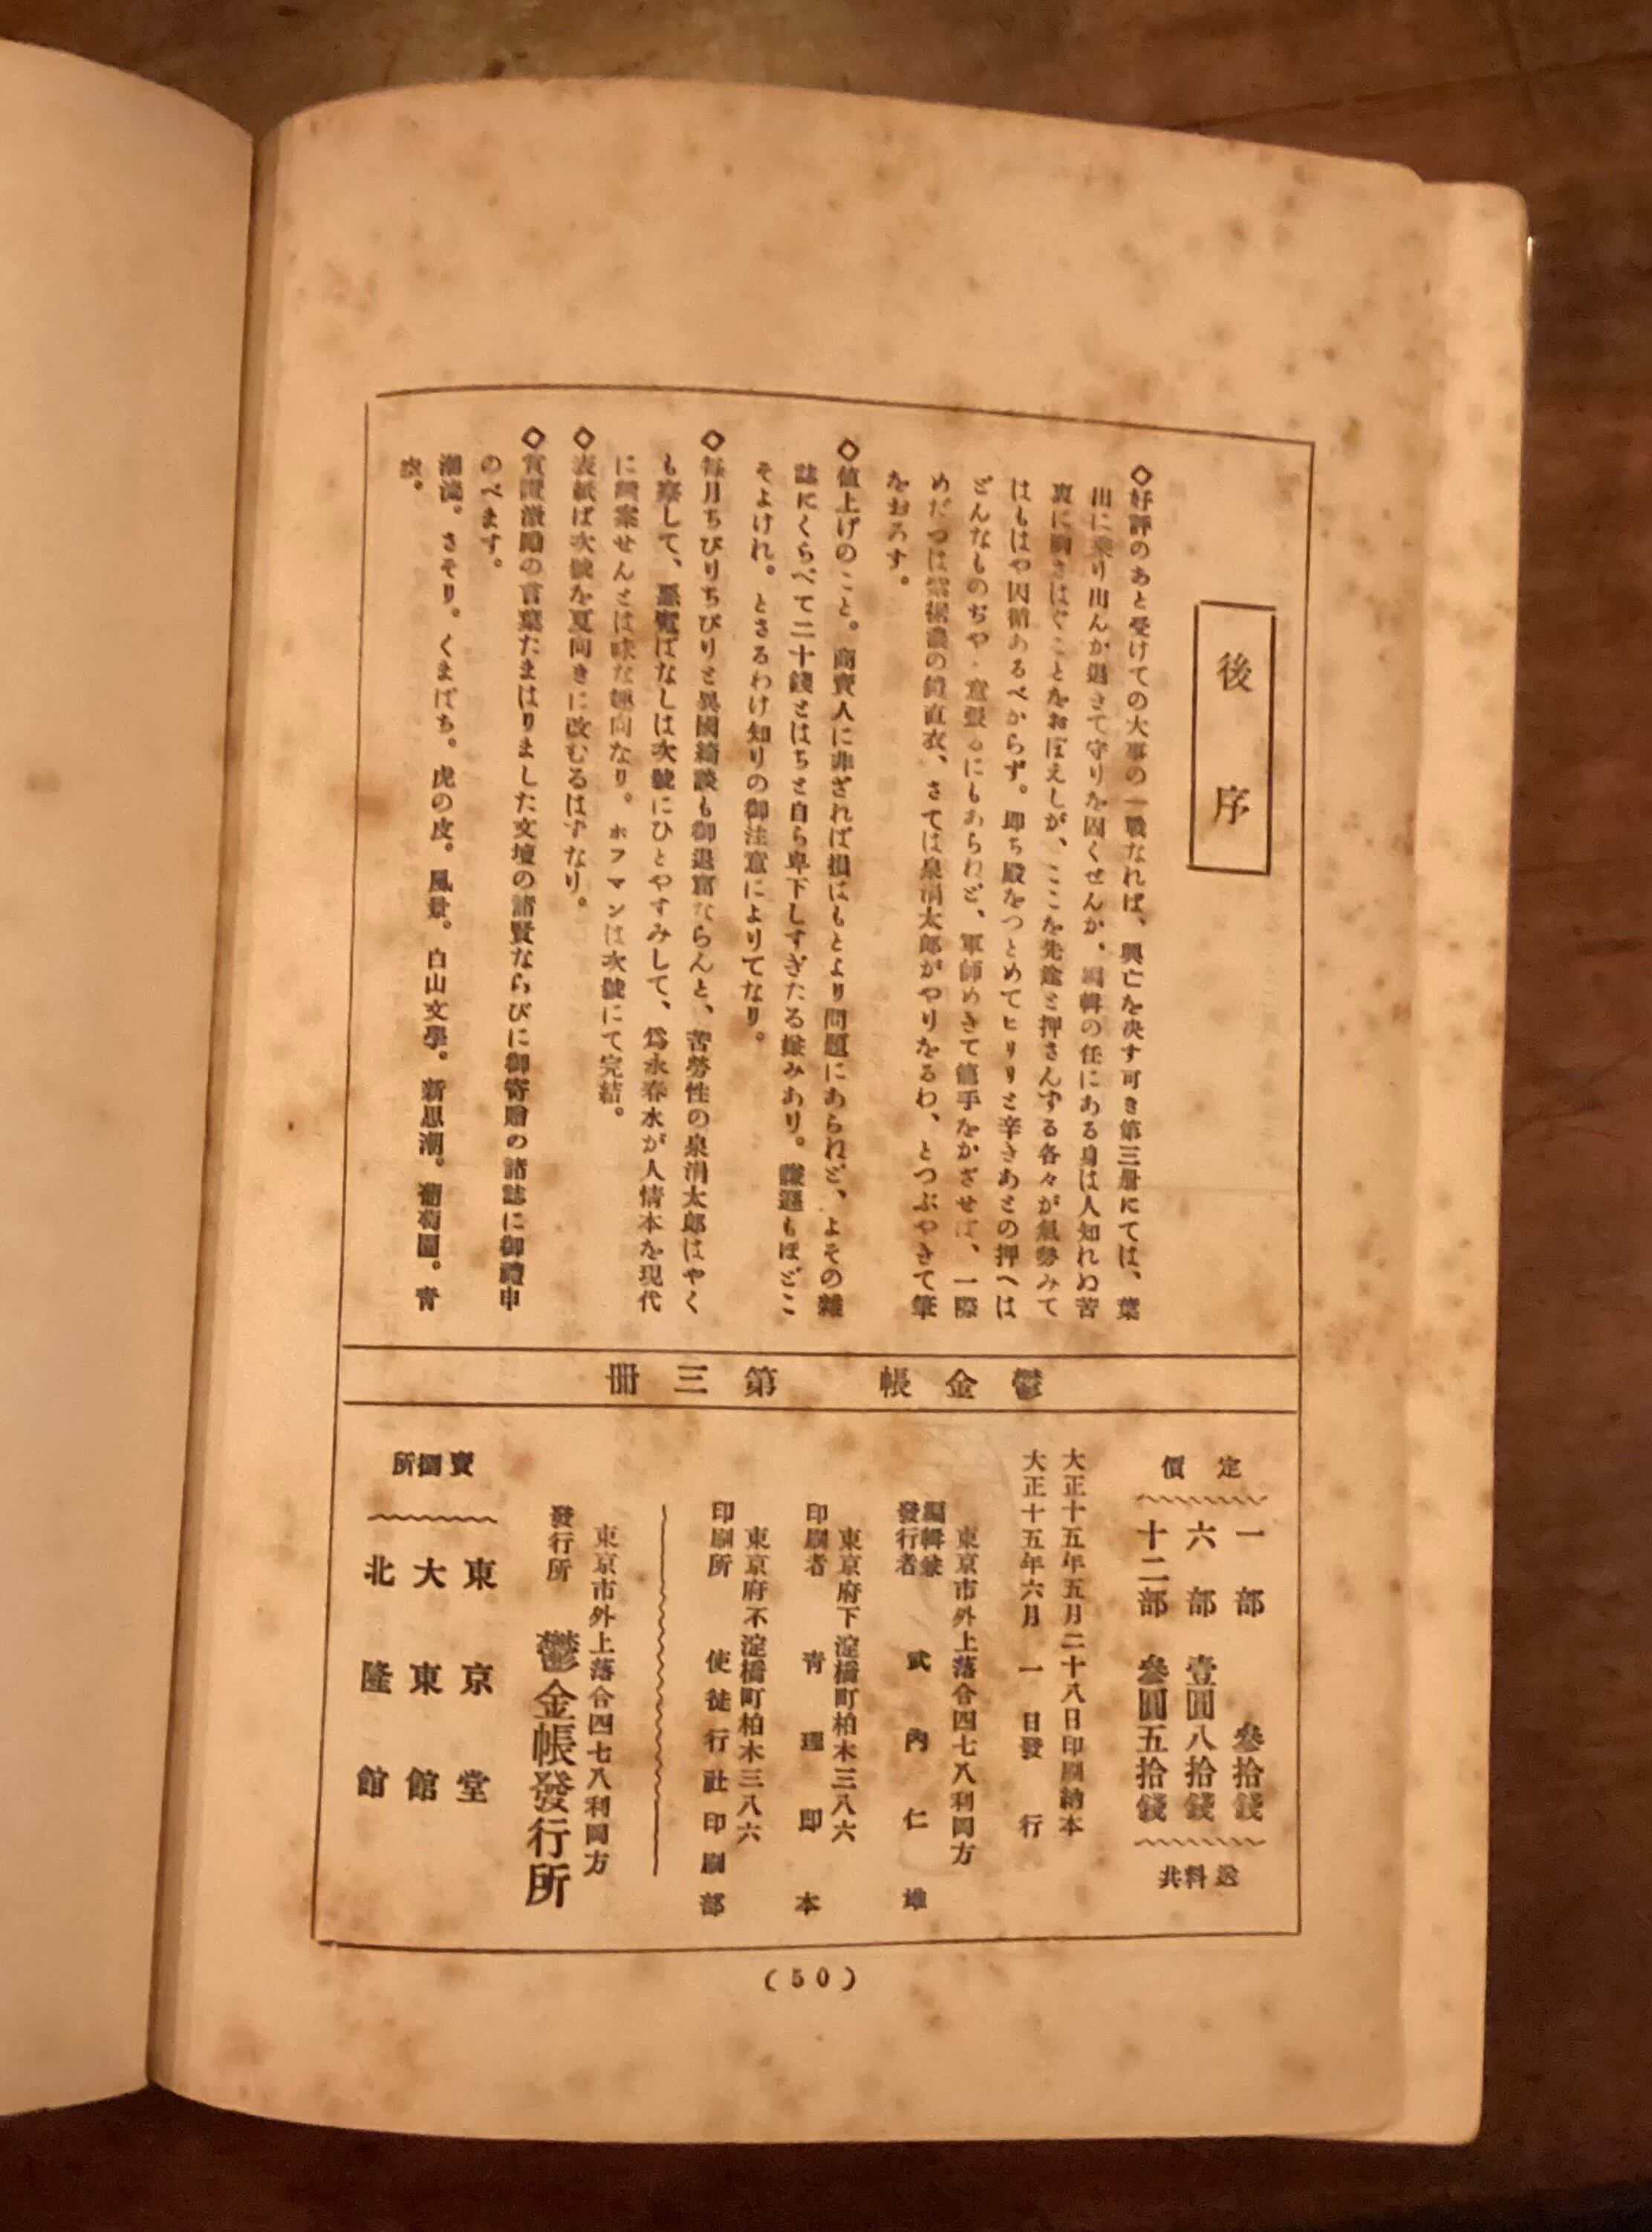 後序
◇好評のあと受けての大事の一戰なれば、興亡を決す可き第三册にては、葉
山に乘り出んか退きて守りを固くせんか、編輯の任にある身は人知れぬ苦
裏に胸さはぐことをおぼえしが、ここを先途と押さんずる各々が氣勢みて
はもはや因循あるべからず。即ち殿をつとめてヒリリと辛きあとの押へは
どんなものぢや、意張るにもあらねど、軍師めきて籠手をかざせば、一際
めだつは紫裾濃の鎧直衣、さては泉涓太郎がやりをるわ、とつぶやきて筆
をおろす。
◇値上げのこと。商賣人に非ざれば損はもとより問題にあらねど、よその雜
誌にくらべて二十錢とはちと自ら卑下しすぎたる嫌みあり。謙遜もほどこ
そよけれ。とさるわけ知りの御注意によりてなり。
◇毎月ちびりちびりと異國綺談も御退窟ならんと、苦勞性の泉涓太郎はやく
も察して、惡魔ばなしは次號にひとやすみして、爲永春水が人情本を現代
に飜案せんとは味な趣向なり。ホフマンは次號にて完結。
◇表紙は次號を夏向きに改むるはずなり。
◇賞讃激勵の言葉たまはりました文壇の諸賢ならびに御寄贈の諸誌に御禮申
のべます。
潮流。さそり。くまばち。虎の皮。風景。白山文學。新思潮。葡萄園。靑
空。
鬱金帳 第三册
定價
一部 參拾錢
六部 壹圓八拾錢
十二部 參圓五拾錢
送料共
大正十五年五月二十八日印刷納本
大正十五年六月一日發行
東京市外上落合四七八利岡方
編輯兼
發行者 武内仁雄
東京府下淀橋町柏木三八六
印刷者 靑理即本
東京府不淀橋町柏木三八六
印刷所 使徒行社印刷部
東京市外上落合四七八利岡方
發行所 鬱金帳發行所
賣捌所
東京堂
大東館
北隆館
(50)